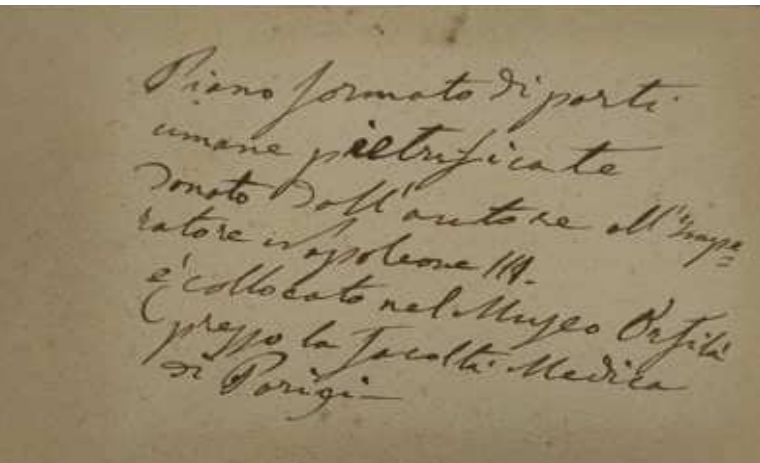 Piano formato di parti
umane pietrificate
Donato Dall'autore all'Impe=
ratore Napoleone III.
è collocato nel Museo Orfila
presso la Facoltà Medica
di Parigi—